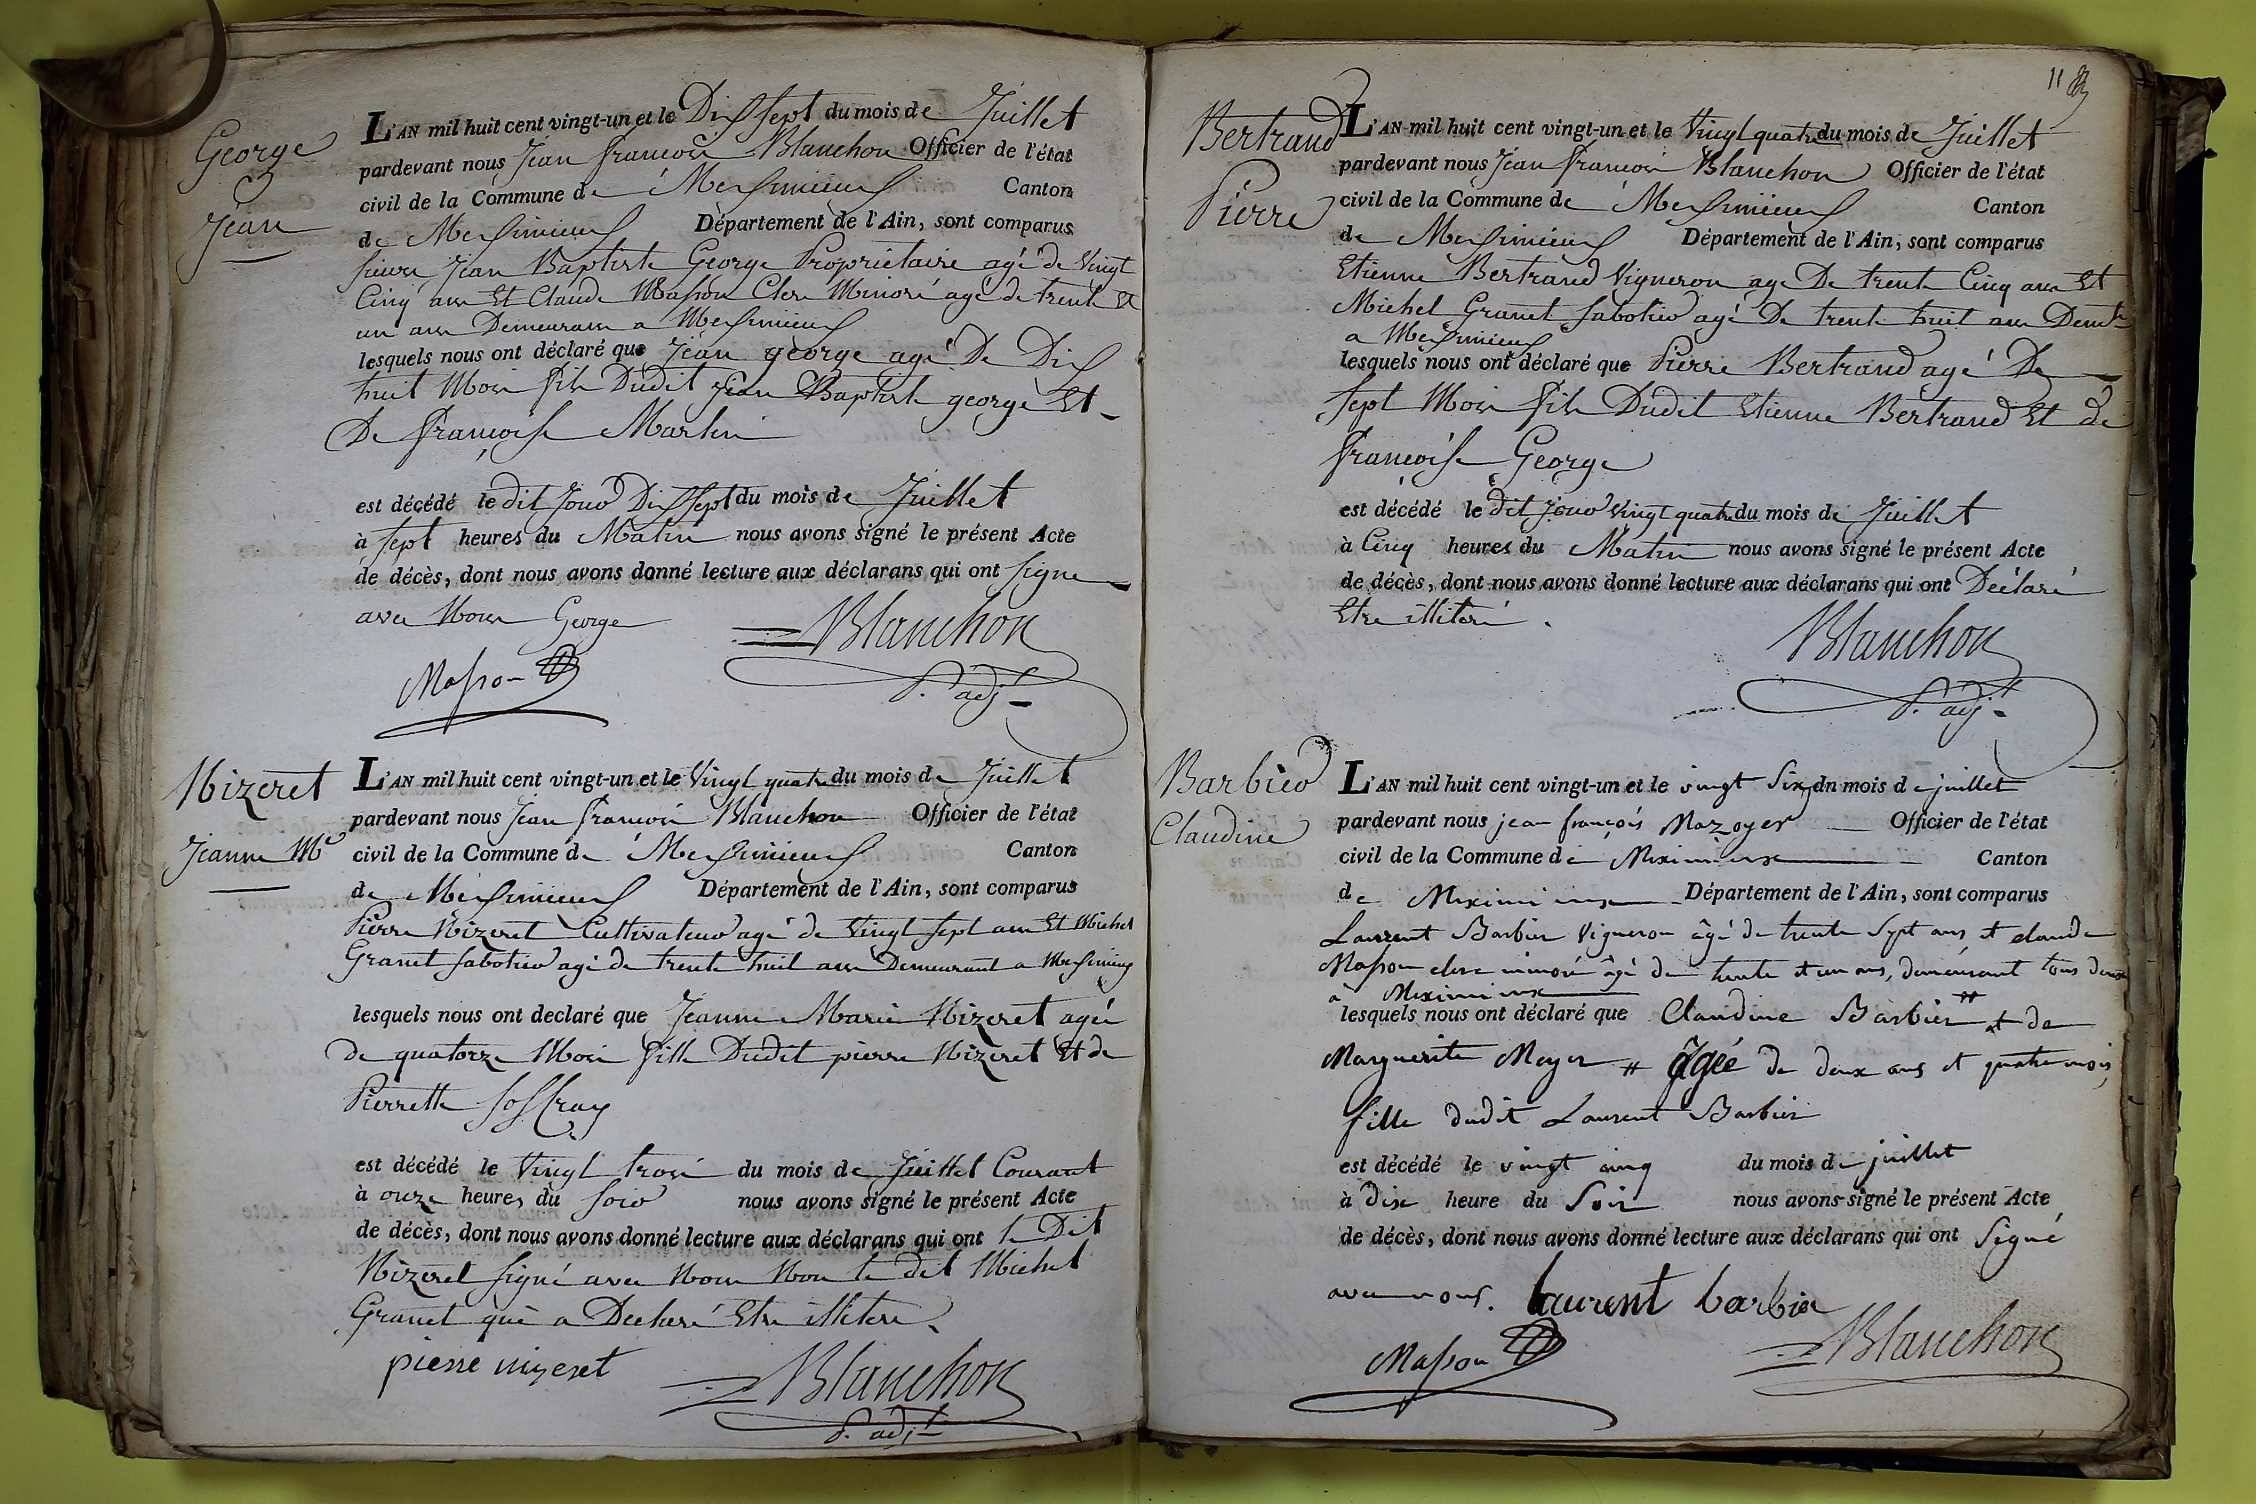 George
Jean
L'AN mil huit cent vingt-un et le Dix sept du mois de Juillet
pardevant nous Jean francois Blanchon Officier de l'état
civil de la Commune de Meximieux Canton
de Meximieux Département de l'Ain, sont comparus
sieur Jean Baptiste George Propriétaire agé de Vingt
Cinq ans Et Claude Masson Clerc Minoré agé de trente Et
un ans Demeurans a Meximieux
lesquels nous ont déclaré que Jean george agé De Dix
huit Mois fils Dudit Jean Baptiste george Et
De francoise Martin
est décédé le dit Jour Dix sept du mois de Juillet
à sept heures du Matin nous avons signé le présent Acte
de décès, dont nous avons donné lecture aux déclarans qui ont signe
avec Nous George
Blanchon
Masson
P. adjt
Nizeret
Jeanne Me
L'AN mil huit cent vingt-un et le Vingt quatre du mois de Juillet
pardevant nous Jean francois Blanchon Officier de l'état
civil de la Commune de Meximieux Canton
de Meximieux Département de l'Ain, sont comparus
Pierre Nizeret Cultivateur agé de Vingt sept ans Et Michel
Granet sabotier agé de trente huit ans Demeurant a Meximieux
lesquels nous ont declaré que Jeanne Marie Nizeret agée
de quatorze Mois fille Dudit pierre Nizeret Et de
Pierrette Joffray
est décédé le Vingt trois du mois de Juillet Courant
à onze heures du soir nous avons signé le présent Acte
de décès, dont nous avons donné lecture aux déclarans qui ont le Dit
Nizeret signé avec Nous Non le dit Michel
Granet qui a Declaré Etre illitéré
pierre nizeret
Blanchon
P. adjt
11
Bertrand
Pierre
L'AN mil huit cent vingt-un et le Vingt quatre du mois de Juillet
pardevant nous Jean francois Blanchon Officier de l'état
civil de la Commune de Meximieux Canton
de Meximieux Département de l'Ain, sont comparus
Etienne Bertrand Vigneron agé De trente Cinq ans Et
Michel Granet sabotier agé De trente huit ans Demt
a Meximieux
lesquels nous ont déclaré que Pierre Bertrand agé De
sept Mois fils Dudit Etienne Bertrand Et de
francoise George
est décédé le dit Jour Vingt quatre du mois de Juillet
à Cinq heures du Matin nous avons signé le présent Acte
de décès, dont nous avons donné lecture aux déclarans qui ont Déclaré
Etre illiteré.
Blanchon
P. adjt
Barbier
Claudine
L'AN mil huit cent vingt-un et le vingt six du mois de juillet
pardevant nous jean françois Mazoyer Officier de l'état
civil de la Commune de Meximieux Canton
de Meximieux Département de l'Ain, sont comparus
Laurent Barbier Vigneron âgé de trente sept ans et claude
Masson clerc minoré âgé de trente et un ans, demeurant tous deux
à Meximieux
lesquels nous ont déclaré que Claudine Barbier # et de
Marguerite Moyer # âgée de deux ans et quatre mois,
fille dudit Laurent Barbier
est décédé le vingt cinq du mois de juillet
à dix heure du Soir nous avons signé le présent Acte
de décès, dont nous avons donné lecture aux déclarans qui ont Signé
avec nous. laurent barbier
Masson
Blanchon